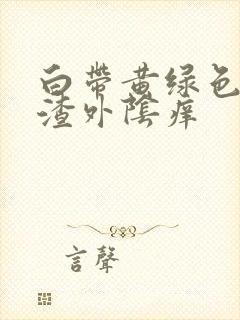 白帶黄绿色
渣外陰痒
言聲